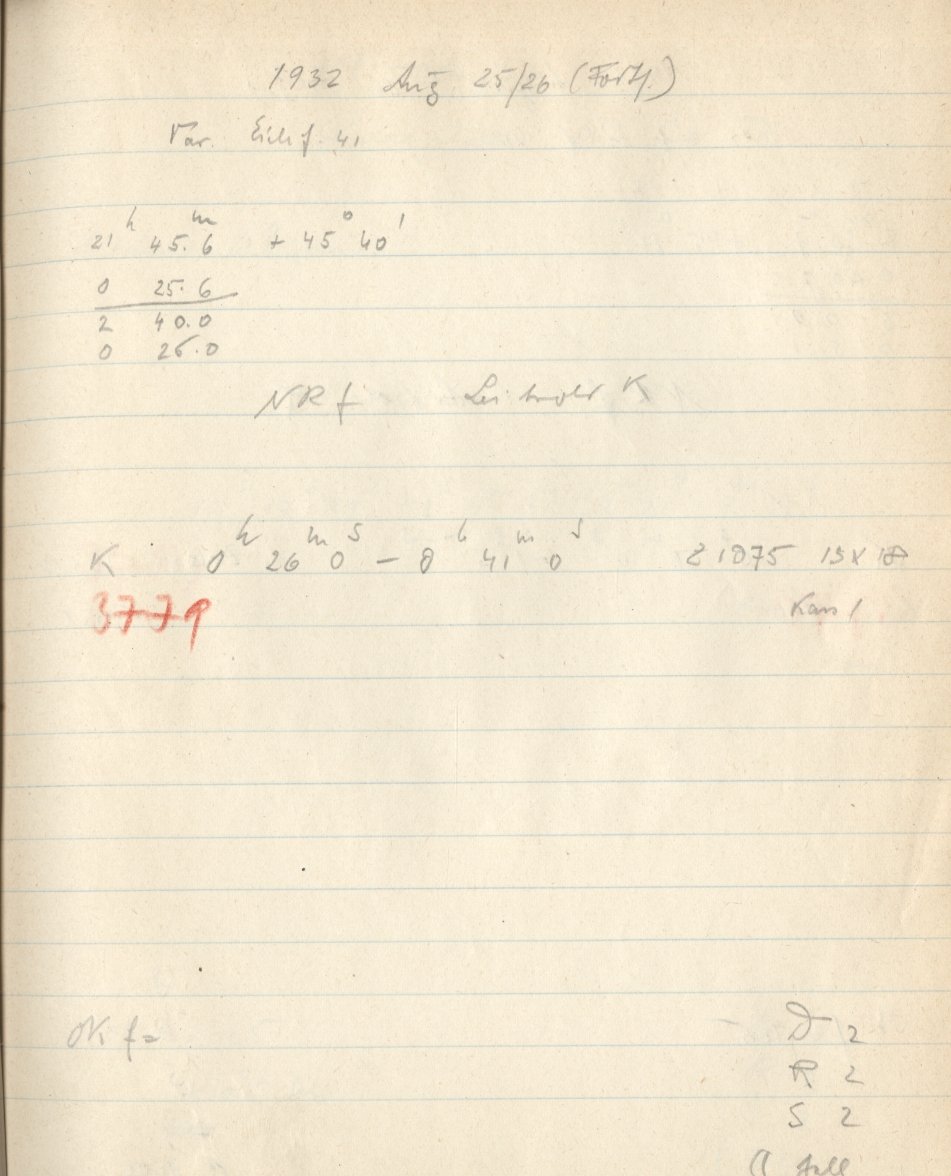 1932 Aug 25/26 (Forts.)
Var. Eich f. 41
21 h 45.6 m + 45 ° 40 '
0 25.6
2 40.0
0 26.0
NR f K
K 0 h 26 m 0 s - 0 h 41 m 0 s Z 1075 13 X 18
3779
OK f =
D 2
R 2
S 2